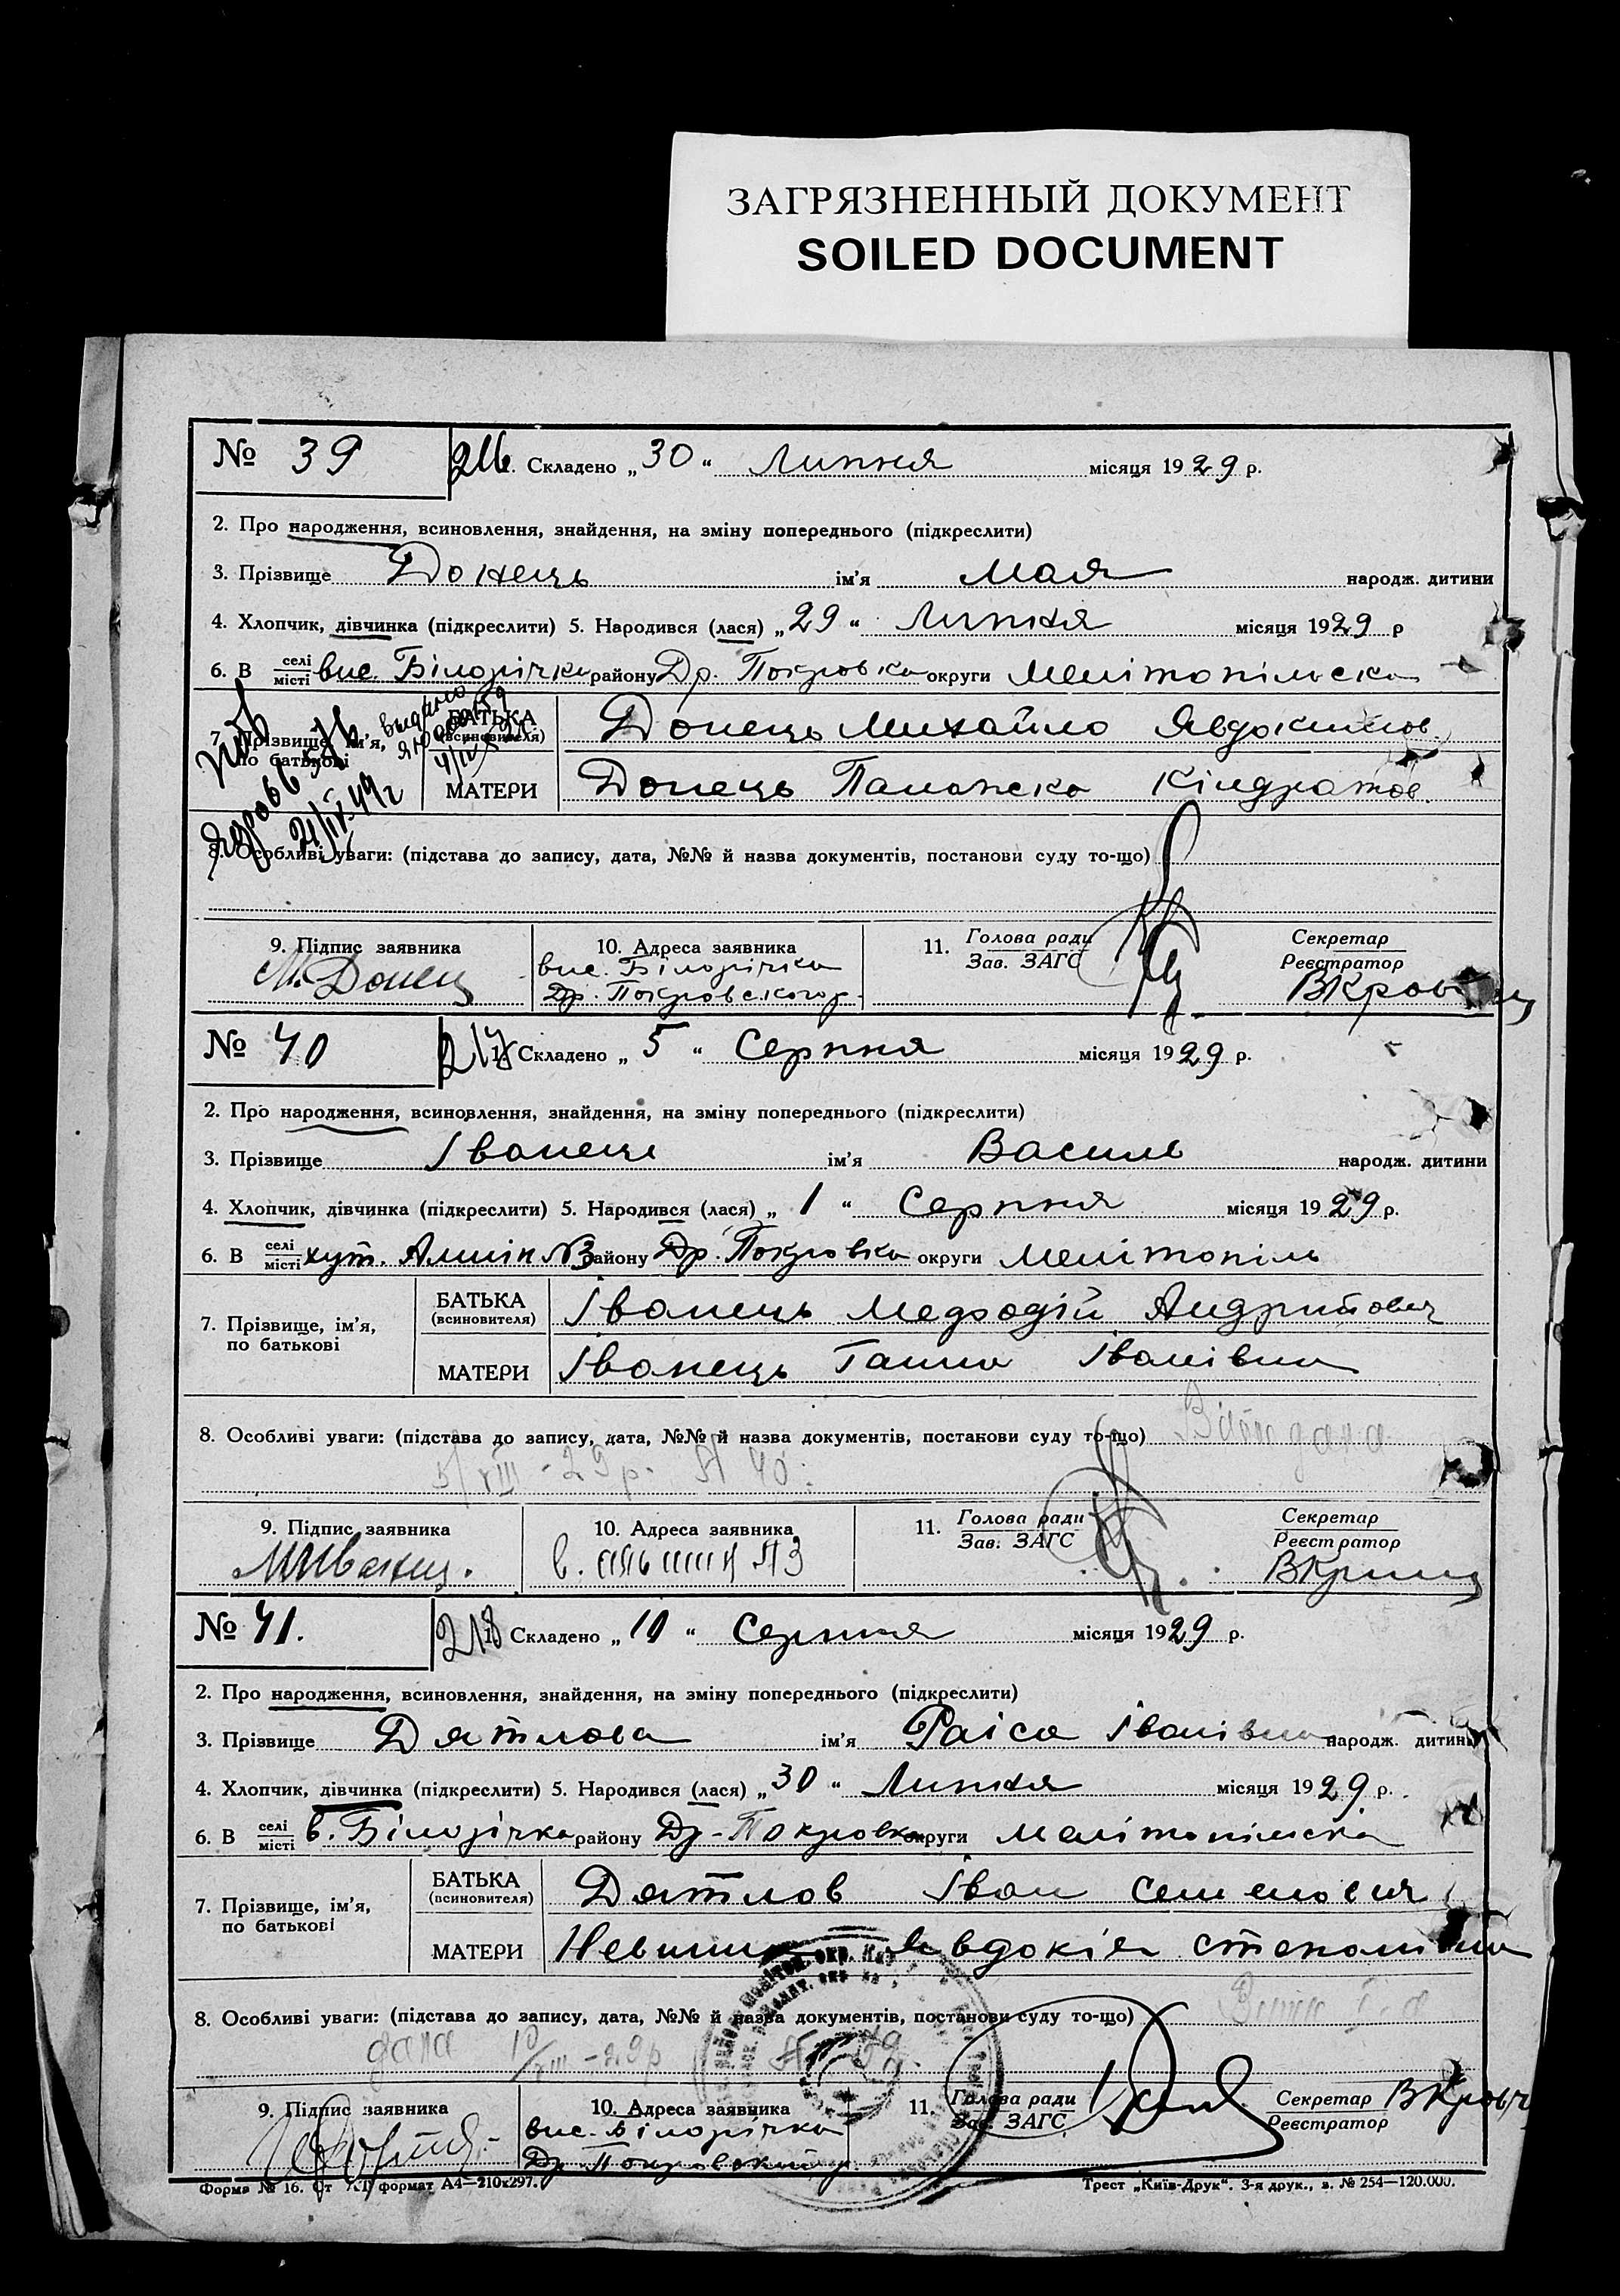 ЗАГРЯЗНЕННЫЙ ДОКУМЕНТ
SOILED DOCUMENT
№ 39 216. Складено „30“ Липня місяця 1929 р.
2. Про народження, всиновлення, знайдення, на зміну попереднього (підкреслити)
3. Прізвище Донець ім'я Мая народж. дитини
4. Хлопчик, дівчинка (підкреслити) 5. Народився (лася) „29“ Липня місяця 1929 р
6. В селі місті вис. Білорічка району Др. Покровка округи Мелітопільска
7. Прізвище, ім'я, по батькові БАТЬКА (всиновителя) Донець Михайло Явдокимов.
МАТЕРИ Донець Паланска Кіндратов.
8. Особливі уваги: (підстава до запису, дата, №№ й назва документів, постанови суду то-що)
9. Підпис заявника 10. Адреса заявника 11. Голова ради Зав. ЗАГС Секретар Реєстратор
М. Донец вис. Білорічка
Др. Покровського р.
№ 40 217 Складено „5“ Серпня місяця 1929 р.
2. Про народження, всиновлення, знайдення, на зміну попереднього (підкреслити)
3. Прізвище Іванець ім'я Василь народж. дитини
4. Хлопчик, дівчинка (підкреслити) 5. Народився (лася) „1“ Серпня місяця 1929 р.
6. В селі місті хут. №3 району Др. Покровка округи Мелітопіль
7. Прізвище, ім'я, по батькові БАТЬКА (всиновителя) Іванець Андрийович
МАТЕРИ Іванець Ганна Іванівна
8. Особливі уваги: (підстава до запису, дата, №№ й назва документів, постанови суду то-що) дана
5/VIII-29р. № 40.
9. Підпис заявника 10. Адреса заявника 11. Голова ради Зав. ЗАГС Секретар Реєстратор
в. №3
№ 41. 218 Складено „10“ Серпня місяця 1929 р.
2. Про народження, всиновлення, знайдення, на зміну попереднього (підкреслити)
3. Прізвище Дятлова ім'я Раіса Іванівна народж. дитини
4. Хлопчик, дівчинка (підкреслити) 5. Народився (лася) „30“ Липня місяця 1929 р.
6. В селі місті в. Білорічка району Др-Покровка округи Мелітопільска
7. Прізвище, ім'я, по батькові БАТЬКА (всиновителя) Дятлов Іван Семенович
МАТЕРИ Явдокія Степанівна
8. Особливі уваги: (підстава до запису, дата, №№ й назва документів, постанови суду то-що)
дана 10/VIII-29р
9. Підпис заявника 10. Адреса заявника 11. Голова ради Зав. ЗАГС Секретар Реєстратор
вис. Білорічка
Форма № 16. формат А4—210x297.
Трест „Київ-Друк“. 3-я друк., з. № 254—120.000.